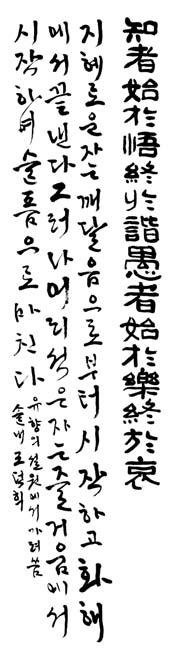 知者始於悟終於諧愚者始於樂終於哀
지혜로운자는깨달음으로부터시작하고화해
에서끝낸다그러나어리석은자는즐거움에서
시작하여슬픔으로마친다
유향의설원에서가려씀
솔내 조덕희